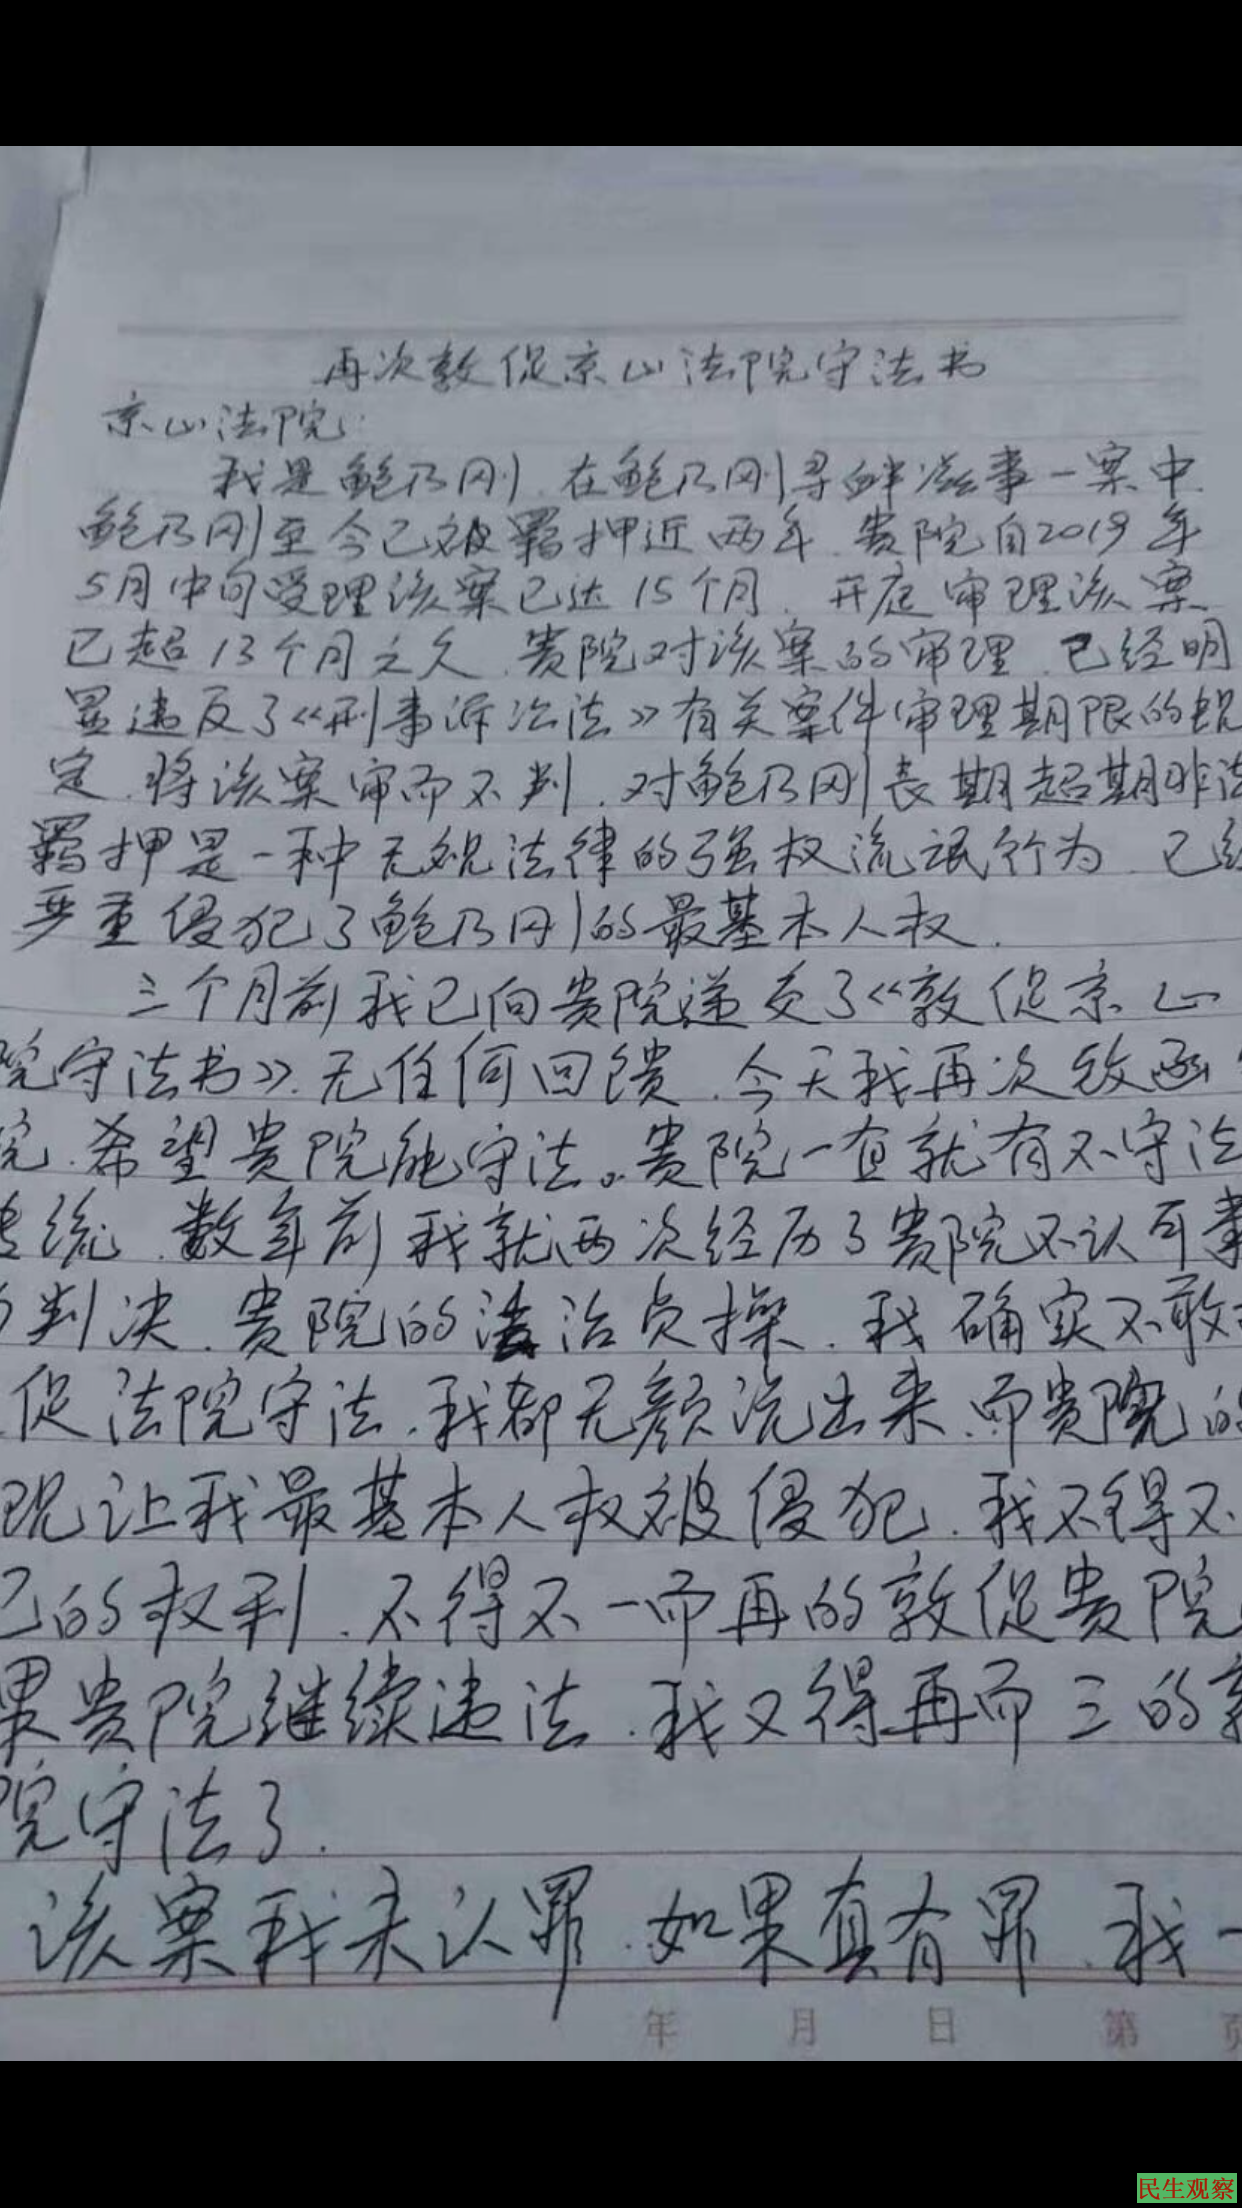 再次敦促京山法院守法书
京山法院:
我是鲍乃刚.在鲍乃刚寻衅滋事一案中
鲍乃刚至今已被羁押近两年.贵院自2019年
5月中旬受理该案已达15个月.开庭审理该案
已超13个月之久.贵院对该案的审理.已经明
显违反了《刑事诉讼法》有关案件审理期限的规
定.将该案审而不判.对鲍乃刚长期超期非法
羁押是一种无视法律的强权流氓行为.已经
严重侵犯了鲍乃刚的最基本人权.
三个月前我已向贵院递交了《敦促京山
院守法书》.无任何回馈.今天我再次致函
院.希望贵院能守法。贵院一直就有不守法
传统.数年前我就两次经历了贵院不认可事
判决.贵院的法治贞操.我确实不敢
促法院守法.我都无颜说出来.而贵院的
现让我最基本人权被侵犯.我不得不
己的权利.不得不一而再的敦促贵院
果贵院继续违法.我又得再而三的敦
院守法了.
该案我未认罪.如果真有罪.我一
年 月 日 第 页
民生观察